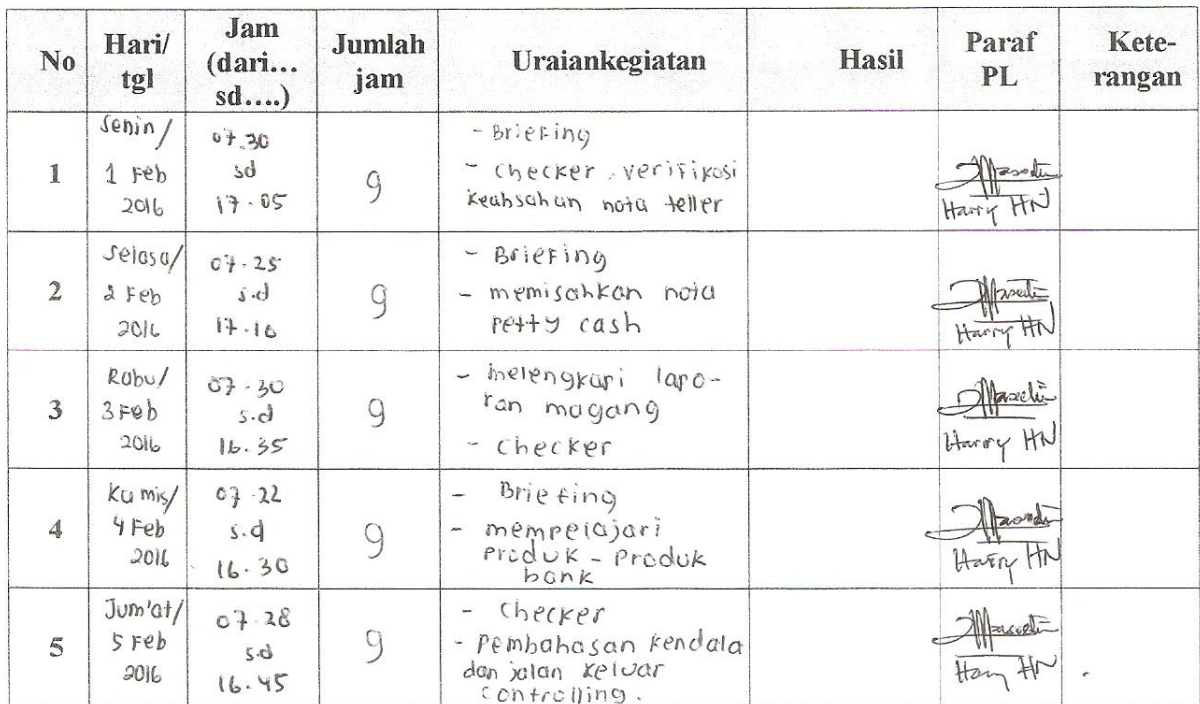 No Hari/ tgl Jam (dari... sd....) Jumlah jam Uraiankegiatan Hasil Paraf PL Kete-rangan
1
Senin/
1 Feb
2016
07.30
sd
17.05
9
- Briefing
- Checker, verifikasi
keahsahan nota teller
Harry HN
2
Selasa/
2 Feb
2016
07.25
s.d
17.10
9
- Briefing
- memisahkan nota
petty cash
Harry HN
3
Rabu/
3 Feb
2016
07.30
s.d
16.35
9
- melengkapi lapo-
ran magang
- Checker
Harry HN
4
Kamis/
4 Feb
2016
07.22
s.d
16.30
9
- Briefing
- mempelajari
produk - produk
bank
Harry HN
5
Jum'at/
5 Feb
2016
07.28
s.d
16.45
9
- Checker
- Pembahasan kendala
dan jalan keluar
controlling.
Harry HN